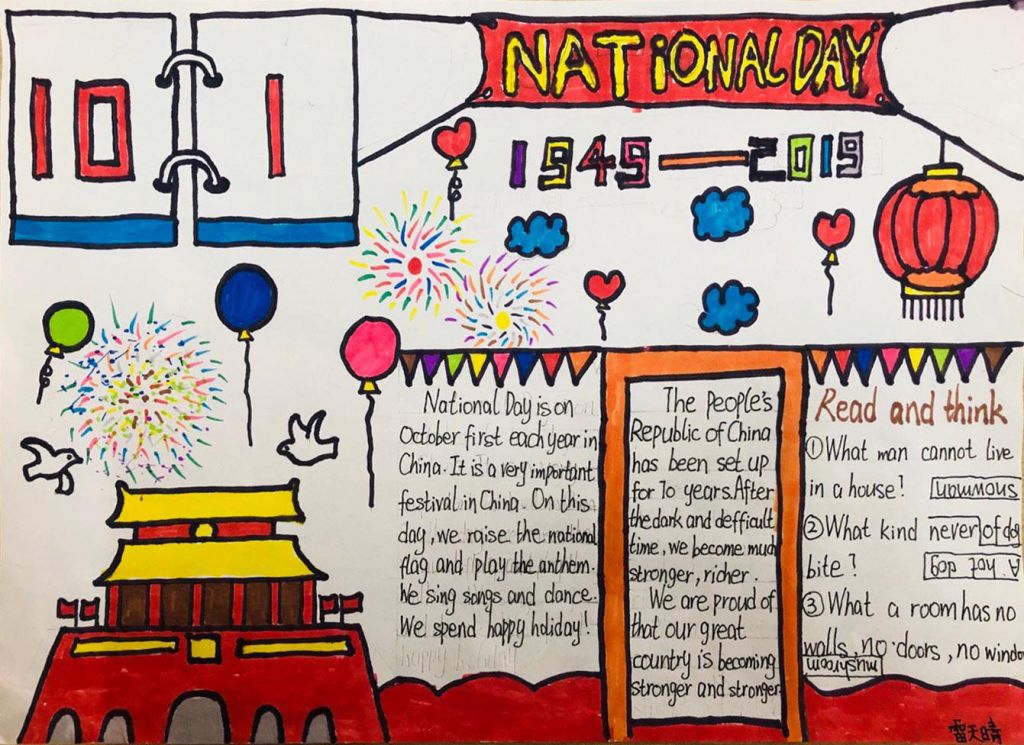 10 1
NATIONAL DAY
1949—2019
National Day is on
October first each year in
China. It is a very important
festival in China. On this
day, we raise the national
flag and play the anthem.
We sing songs and dance.
We spend happy holiday!
The People's
Republic of China
has been set up
for 70 years. After
the dark and defficult
time, we become much
stronger, richer.
We are proud of
that our great
country is becoming
stronger and stronger.
Read and think
①What man cannot live
in a house?
snowman
②What kind never of dog
bite?
A. hot dog
③What a room has no
walls, no doors, no window
mushroom
雷天晴